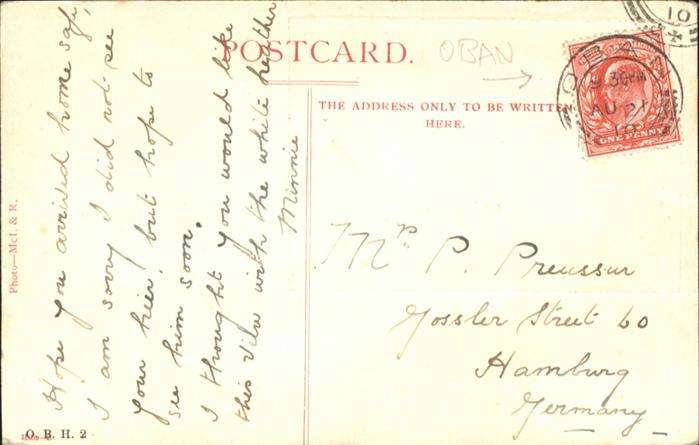 POSTCARD.
OBAN
THE ADDRESS ONLY TO BE WRITTEN
HERE.
OBAN
9 30PM
AU 21
10
ONE PENNY
10
Hope you arrived home safe,
I am sorry I did not see
your hier! but hope to
see him soon.
I thought you would like
this view with the white heather
Minnie
Mr P. Preussur
Gossler Street 60
Hamburg
Germany
Photo—McI. & R.
O. B. H. 2